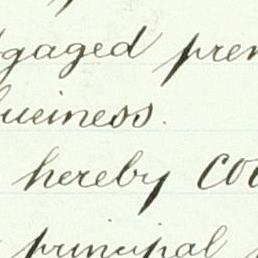 gaged prem
business.
hereby cov
principal